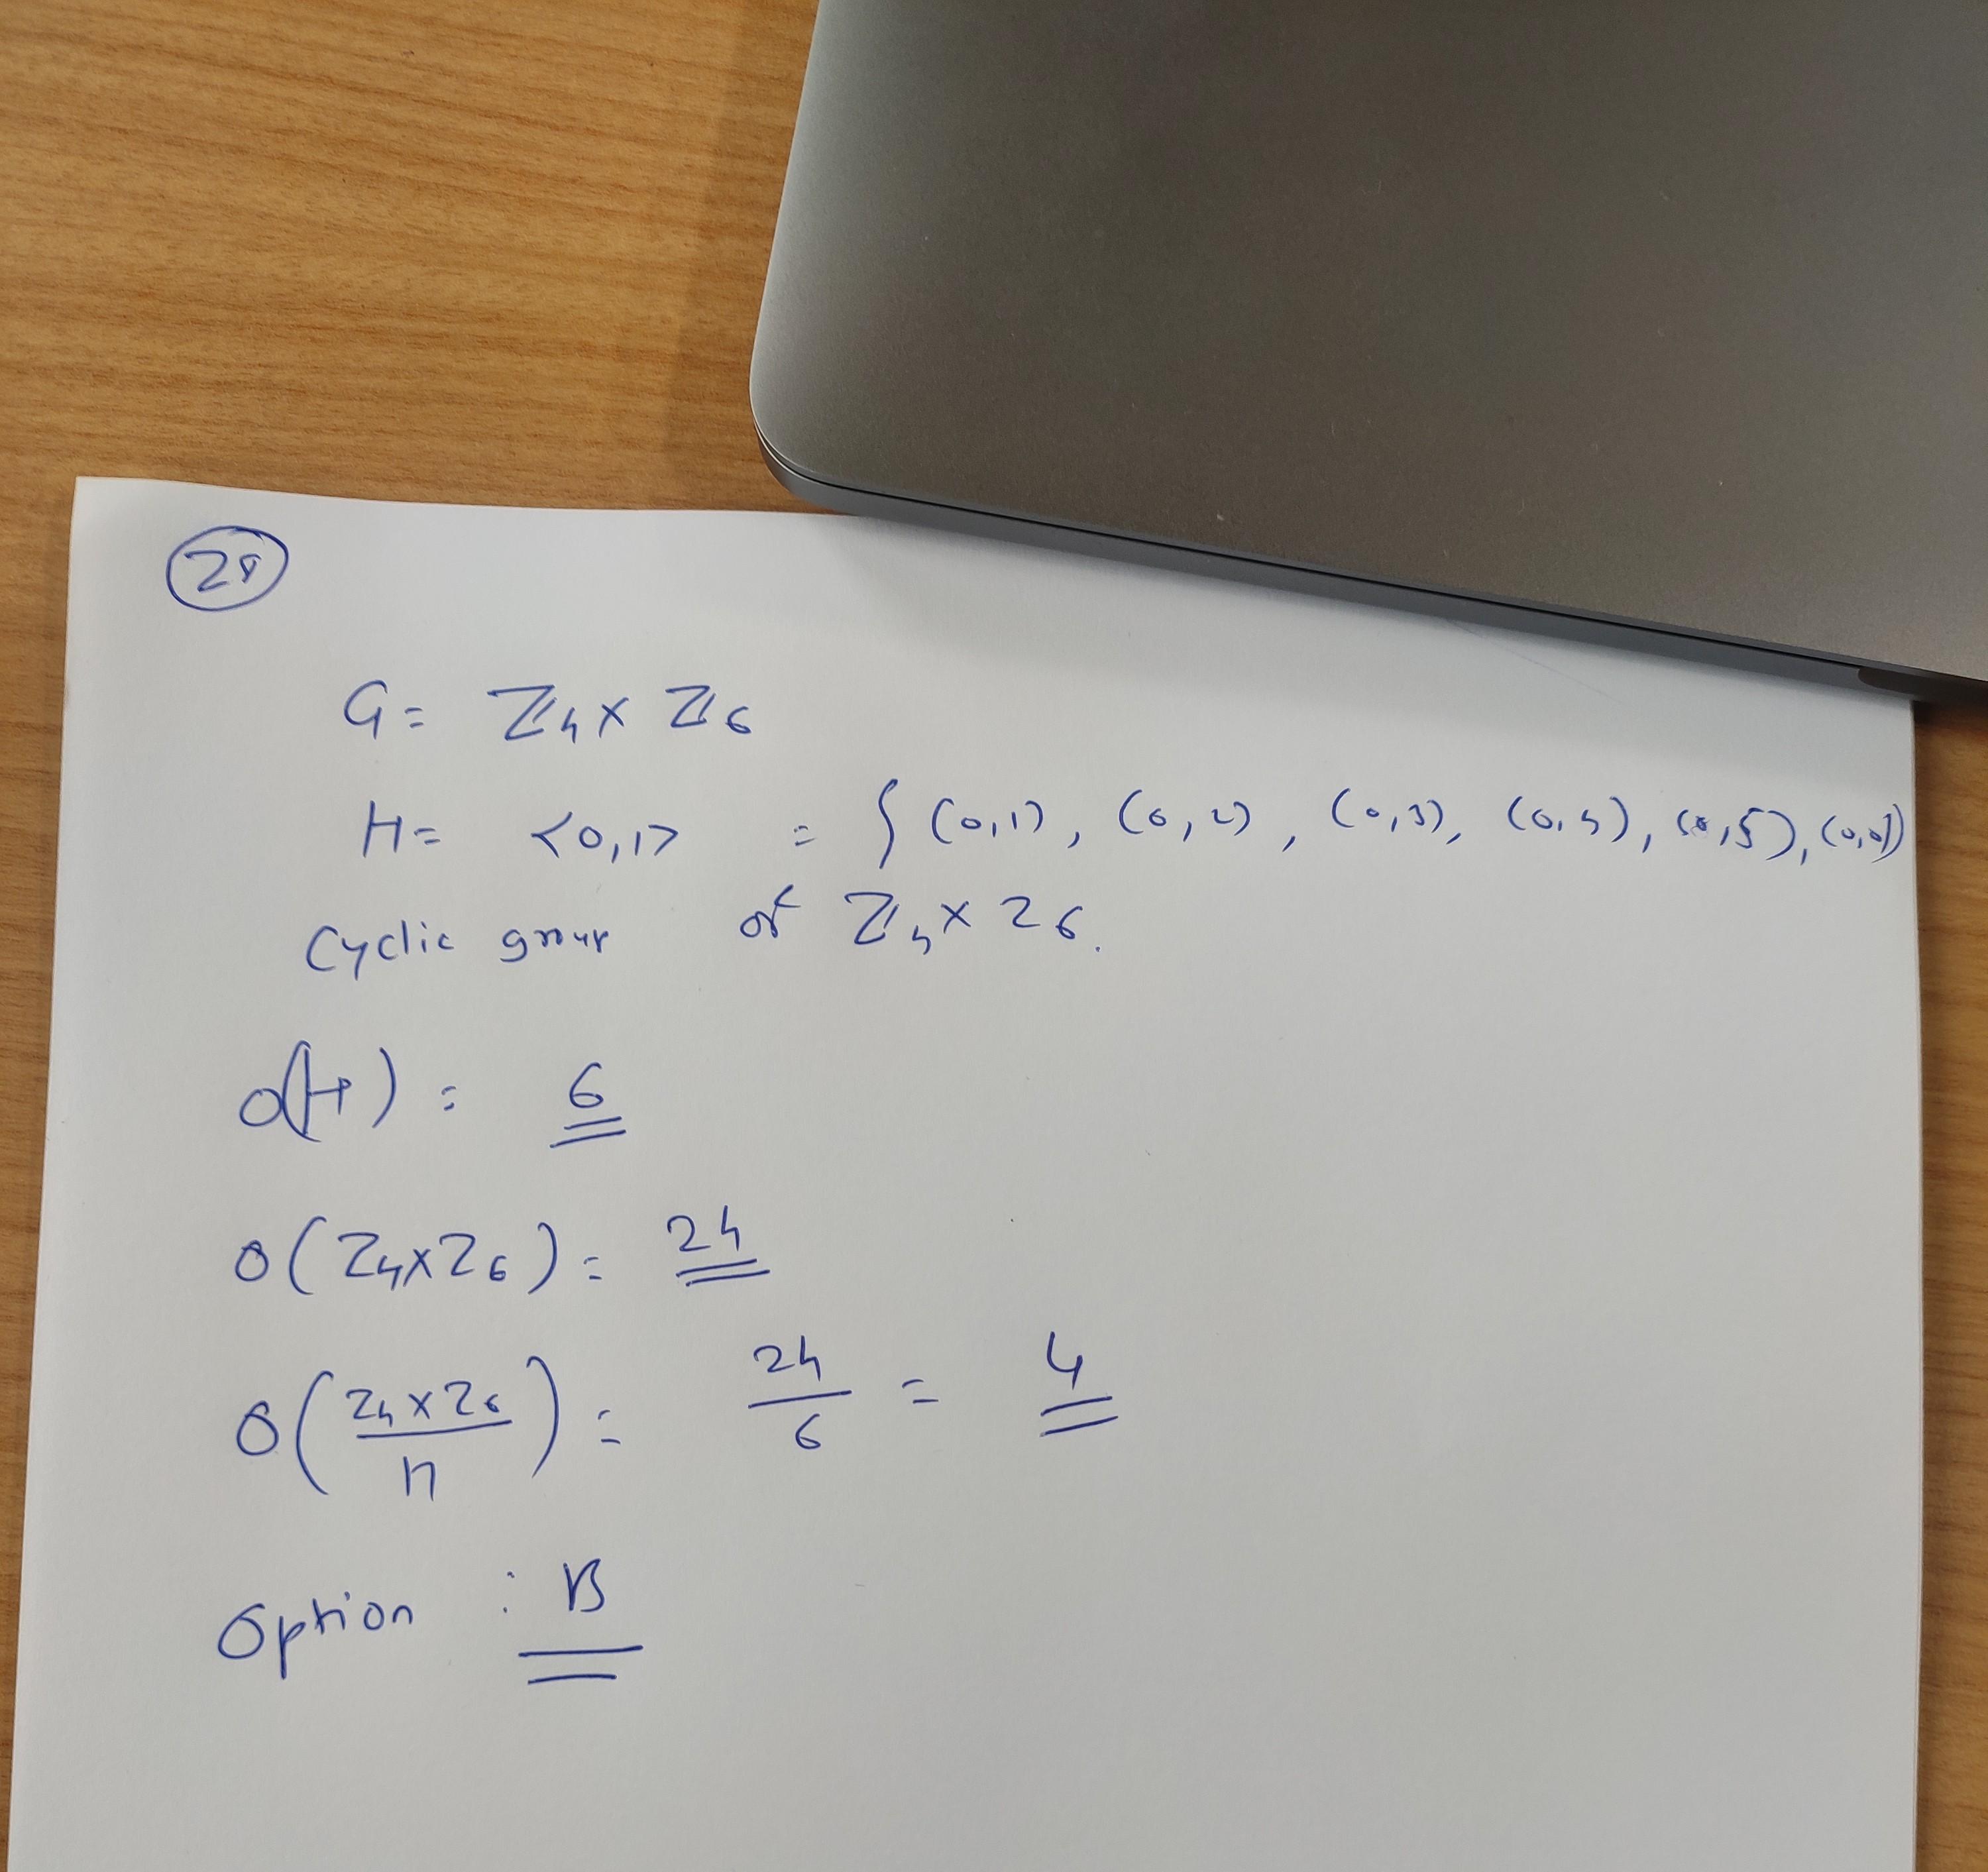 28
G = Z4 × Z6
H = <0,1> = { (0,1), (0,2), (0,3), (0,4), (0,5), (0,0)}
Cyclic group of Z4 × Z6.
o(H) = 6
o(Z4×Z6) = 24
o(Z4×Z6/H) = 24/6 = 4
Option : B